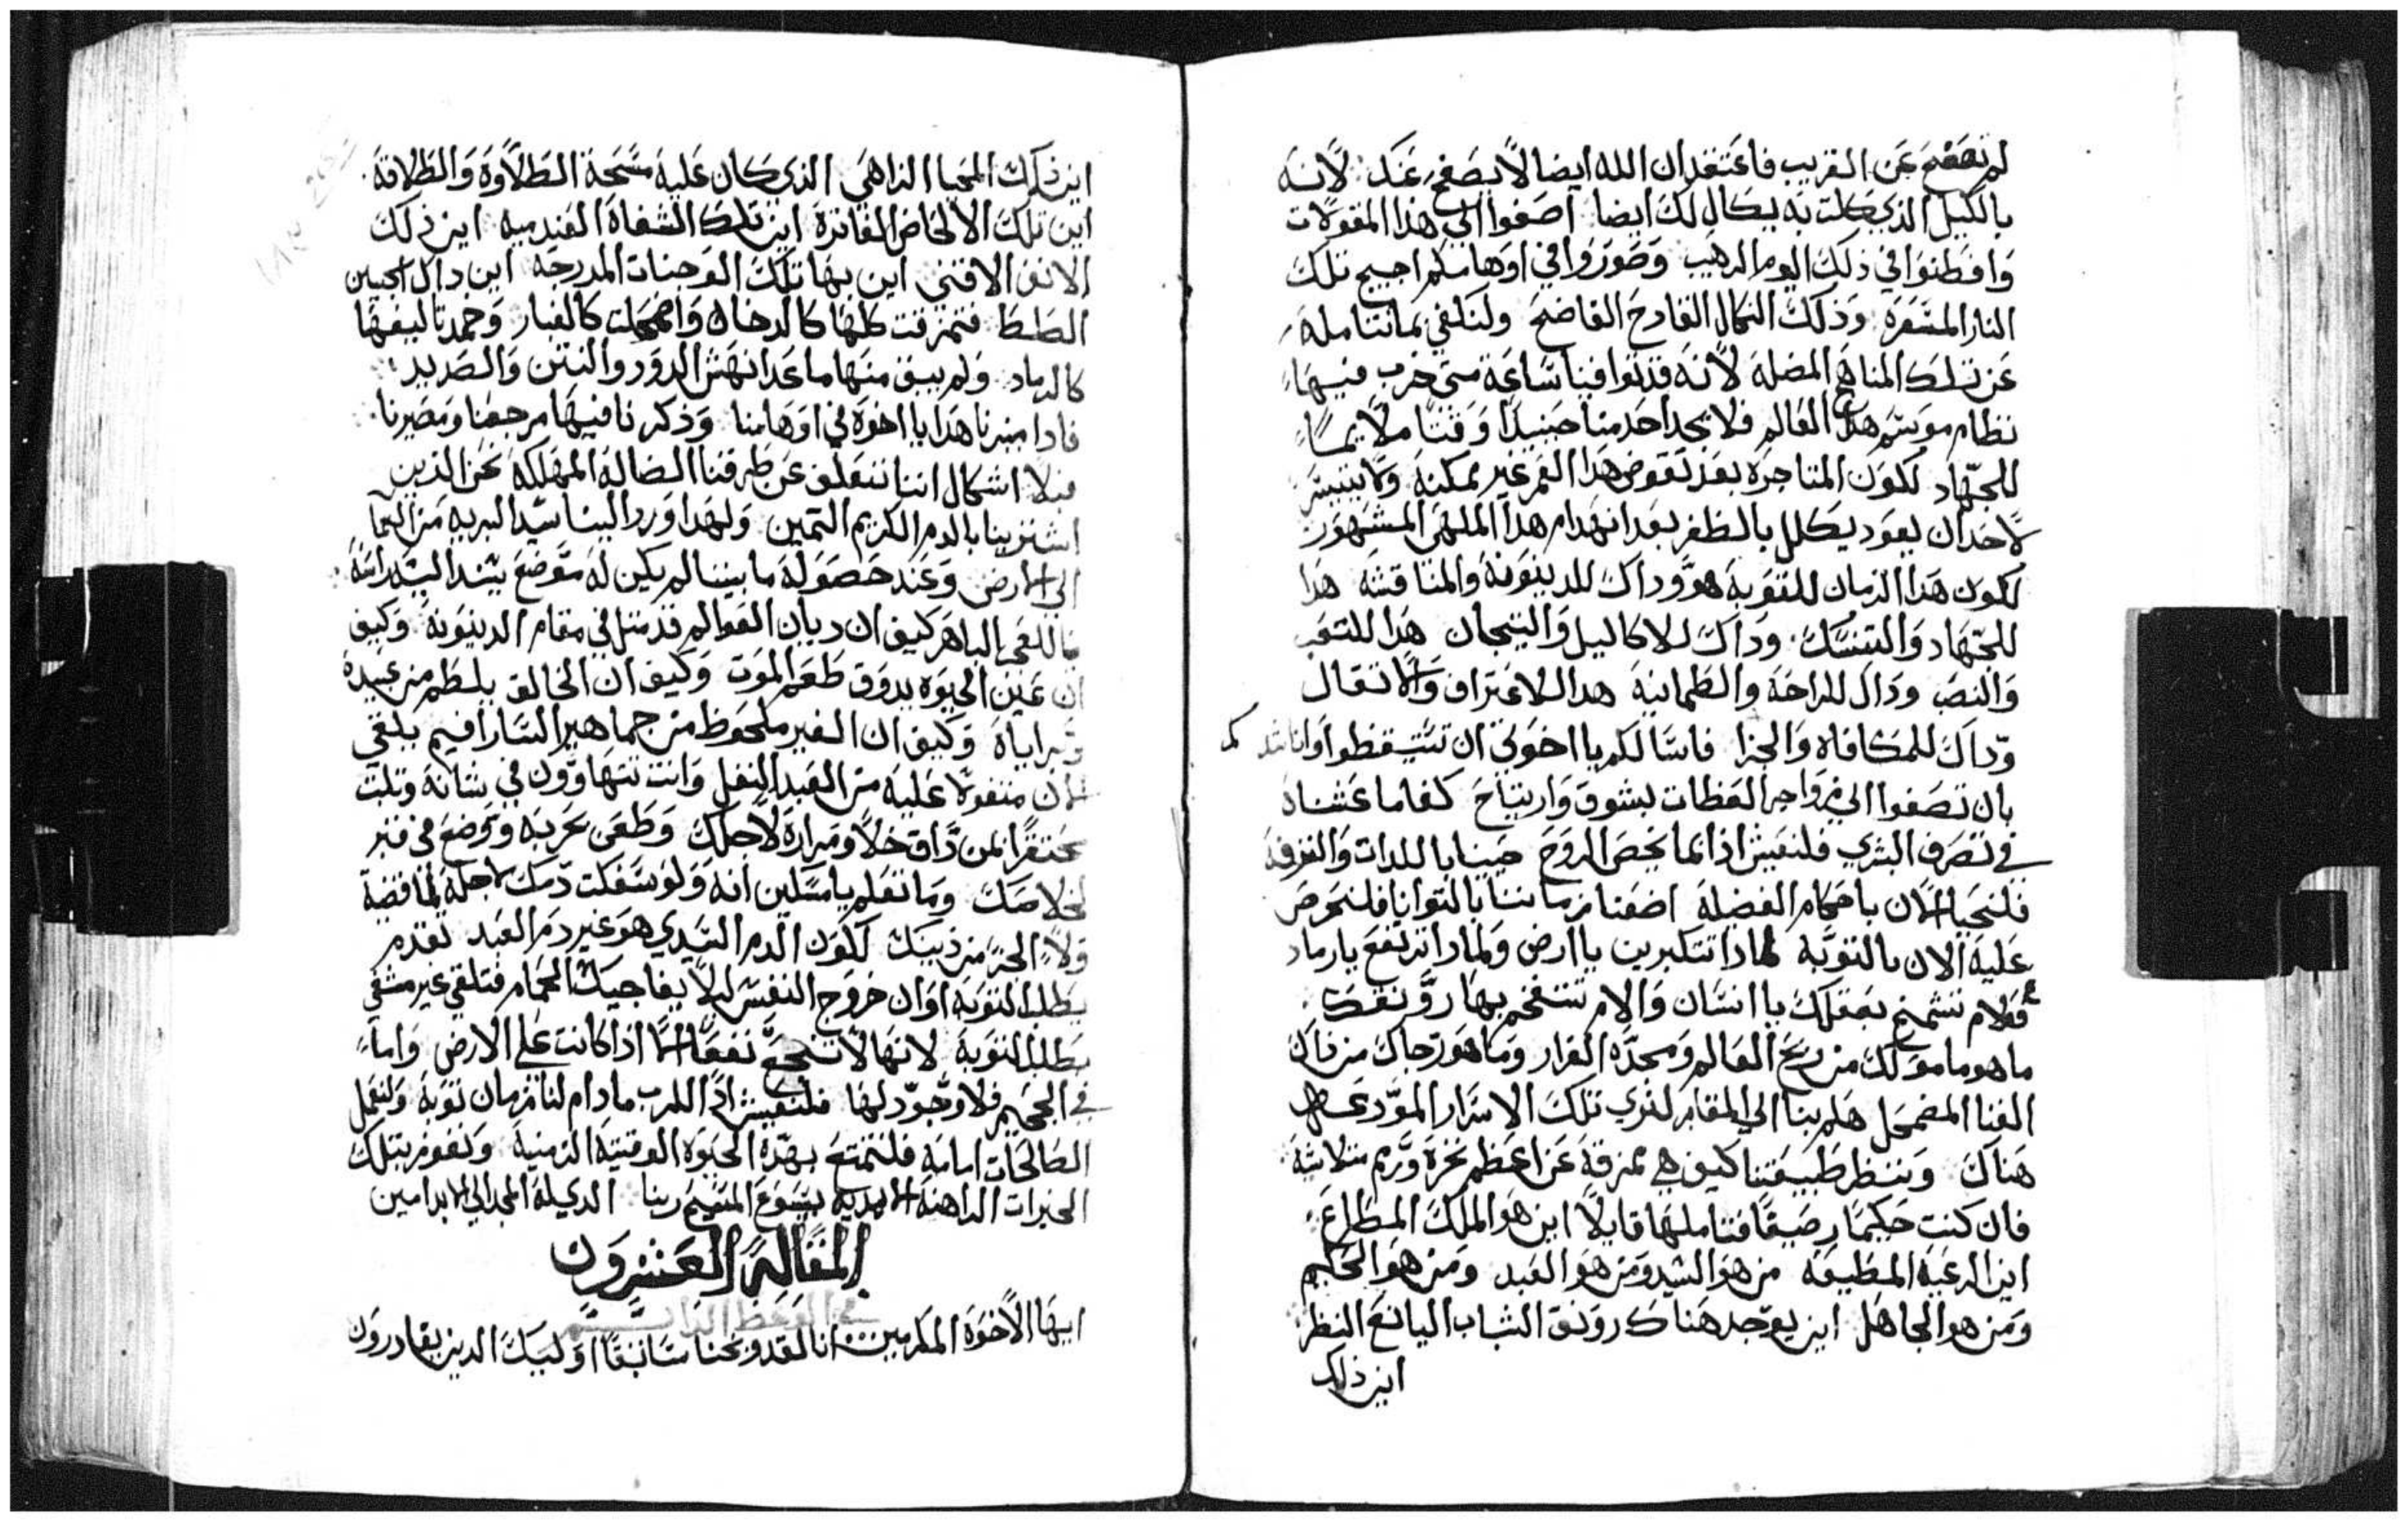 لم تصفح عن القريب فاعتقد ان الله ايضا لا يصفح عنك لانه
بالكيل الذي كلت به يكال لك ايضا اصغوا الي هذا المقولات
وافطنوا في ذلك اليوم الرهيب وصوروا في اوهامكم اجيج تلك
النار المسعره وذلك النكال الفادح الفاضح ولنكفي بما نتامله
عن تلك المناهج المضله لانه قد توافينا ساعة متي خرب فيها
نظام موسم هذا العالم فلا يجد احد منا حينيدا وقتا ملايما
للجهاد لكون المتاجره بعد تقوض هذا العمر غير ممكنه ولا يتيسر
لاحد ان يعود يكلل بالظفر بعد انهدام هذا الملهي المشهور
لكون هذا الزمان للتوبة هو وداك للدينونة والمناقشه هذا
للجهاد والتنسك وداك للاكاليل والتيجان هذا للتعب
والنصب وداك للراحة والطمانينة هدا للاعتراف والانفعال
وداك للمكافاه والجزا فاسالكم يا اخوتي ان تستيقظوا وانا شدكم
بان تصغوا الي زواجر العظات بشوق وارتياح كفا ما عشناه
في تصرف البشري فلنعيش اذا بما يخص الروح حيينا باللدات والغرفه
فلنحيا الان باحكام الفضيله اضعنا زماننا بالتوانيا فلنحرص
عليه الان بالتوبة لماذا تتكبرين يا ارض ولمادا ترتفع يا رماد
فعلام تشمخ بعقلك يا انسان والام تنتفخ بها رونقك
ما هو ماموْلك من ربح العالم ومجده الغرار وما هو رجاك من ذاك
الغنا المضمحل هلم بنا الي المقابر لنري تلك الاسرار المودعه
هناك وننظر طبيعتنا كيف هي ممزقة عن اعظم نخرة ورمم متلاشية
فان كنت حكيما رصيفا فتاملها قايلا اين هو الملك المطاع
اين الرعية المطيعه من هو السيد ومن هو العبد ومن هو الحكيم
ومن هو الجاهل اين يوجد هناك رونق الشباب اليانع النظر
اين ذلك
اين ذلك المحيا الزاهي الذي كان عليه مسحة الطلاوة والطلاقة
اين تلك الالحاض الفاترة اين تلك الشفاة العندميه اين ذلك
الانف الاقني اين بها تلك الوجنات المدرجه اين داك الجبين
الطط فتمزقت كلها كالدخان واضمحلت كالغبار وخمد تاليفها
كالرماد ولم يبق منها ما عدا نهش الدود والنتن والصديد
فادا ميزنا هدا يا اخوة في اوهامنا وذكرنا فيها مرجعنا ومصيرنا
فبلا اشكال اننا ننعلف عن طرقنا الضالة المهلكه نحن الذين
اشترينا بالدم الكريم التمين ولهدا ورد الينا سيد البريه من السما
الي الارض وعند حصوله ما بيننا لم يكن له موضع يسند اليه راسه
يا للعجب الباهر كيف ان ديان العوالم قد متل في مقام الدينونة وكيف
ان عين الحيوه يدوق طعم الموت وكيف ان الخالق يلطم من عبيدة
وبراياه وكيف ان الغير ملحوظ من جماهير السارافيم يلقي
متفولا عليه من العبد النغل وانت تتهاوون في شانه وتلبت
محتقرا لمن داق خلا ومرارة لاجلك وطعن بحربه ووضع في قبر
لخلاصك وما تعلم يا مسكين انه ولو سفكت دمك لاجله لما قضية
ولا الجز من ذنبك لكون الدم السيدي هو غير دم العبد تقدم
بطلب التوبه اوان خروج النفس ليلا يفاجيك الحمام فتلقي غير مشفي
بطلب التوبة لانها لا تنجح نفعا الا اذا كانت على الارض واما
في الجحيم فلا وجود لها فلنعيش اذا للرب مادام لنا زمان توبة ولنعمل
الصالحات امامه فلنتمتع بهذه الحيوة الوقتية الزمنية ونفوز بتلك
الخيرات الراهنة الابدية بيسوع المسيح ربنا الدي له المجد الي الابد امين
المقالة العشرون
ايها الاخوة المكرمين انا لقد وبخنا سابقا اوليك الدين يغادرون